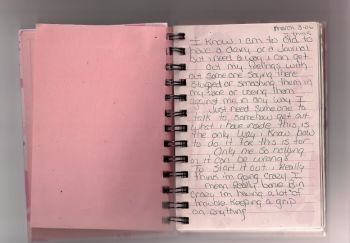 March 3-06
I Know I am to old to
have a diary or a Journal
but I need a way I can get
out my feelings with
out some one saying there
Stuped or smashing them in
my face or useing them
against me in any way I
Just need someone to
talk to, somehow get out
what I have inside this is
the only way I Know how
to do it for this is for
Only me so nothing
in it can be wrong!
To Start it out I Really
think I'm going crazy I
mean Really Losing it in
crazy Im having a lot of
trouble Keeping a grip
on anything